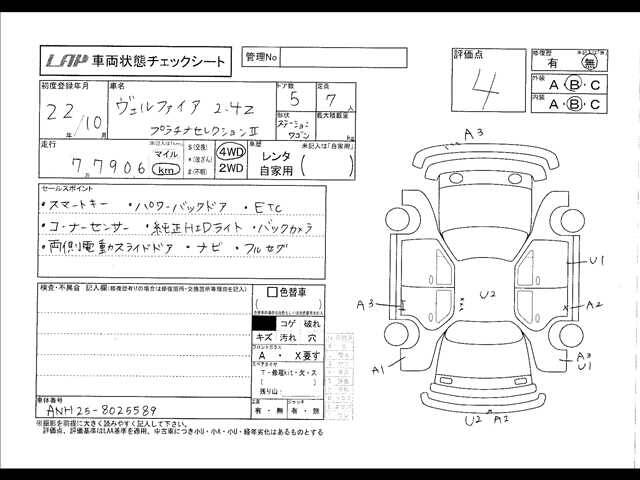 LAP 車両状態チェックシート
管理No
評価点
4
修復歴
未記入は「無」
有 無
外装
A・B・C
内装
A・B・C
初度登録年月
22年/10月
車名
ヴェルファイア 2.4Z
プラチナセレクションⅡ
ドア数
5
定員
7人
形状
ステーションワゴン
最大積載量
kg
走行
77906
未記入は1km
マイル
km
$(交換)
*(改ざん)
#(不明)
4WD
2WD
車歴
未記入は「自家用」
レンタ
自家用
セールスポイント
・スマートキー ・パワーバックドア ・ETC
・コーナーセンサー ・純正HIDライト ・バックカメラ
・両側電動スライドドア ・ナビ ・フルセグ
検査・不具合 記入欄(修復歴有りの場合は修復箇所・交換箇所等理由を記入)
色替車
コゲ 破れ
キズ 汚れ 穴
フロントガラス
A ・ X要す
スペアタイヤ
T・修理kit・欠・ス
残り山
工具
有・無
ジャッキ
有・無
車体番号
ANH25-8025589
※撮影を前提に大きく読みやすく記入して下さい。
評価点、評価基準はLAA基準を適用。中古車につき小U・小A・小U・経年劣化はあるものとする
A3
U1
U2
A3
A2
A1
A3
U1
U2 A2